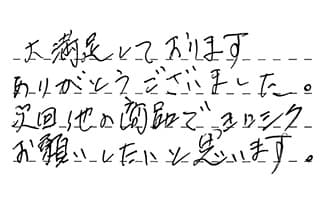 大満足しております
ありがとうございました。
次回他の商品でもヨロシク
お願いしたいと思います。